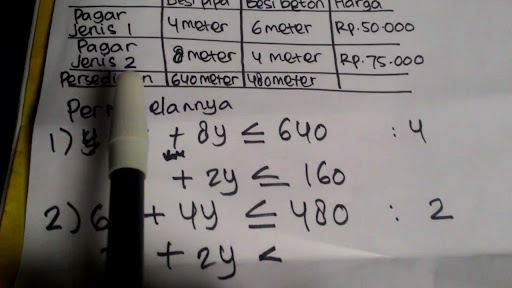 Besi pipa Besi beton Harga
Pagar Jenis 1 4 meter 6 meter Rp. 50.000
Pagar Jenis 2 8 meter 4 meter Rp. 75.000
640 meter 480 meter
1) + 8y ≤ 640 : 4
+ 2y ≤ 160
2) 6 + 4y ≤ 480 : 2
+ 2y <